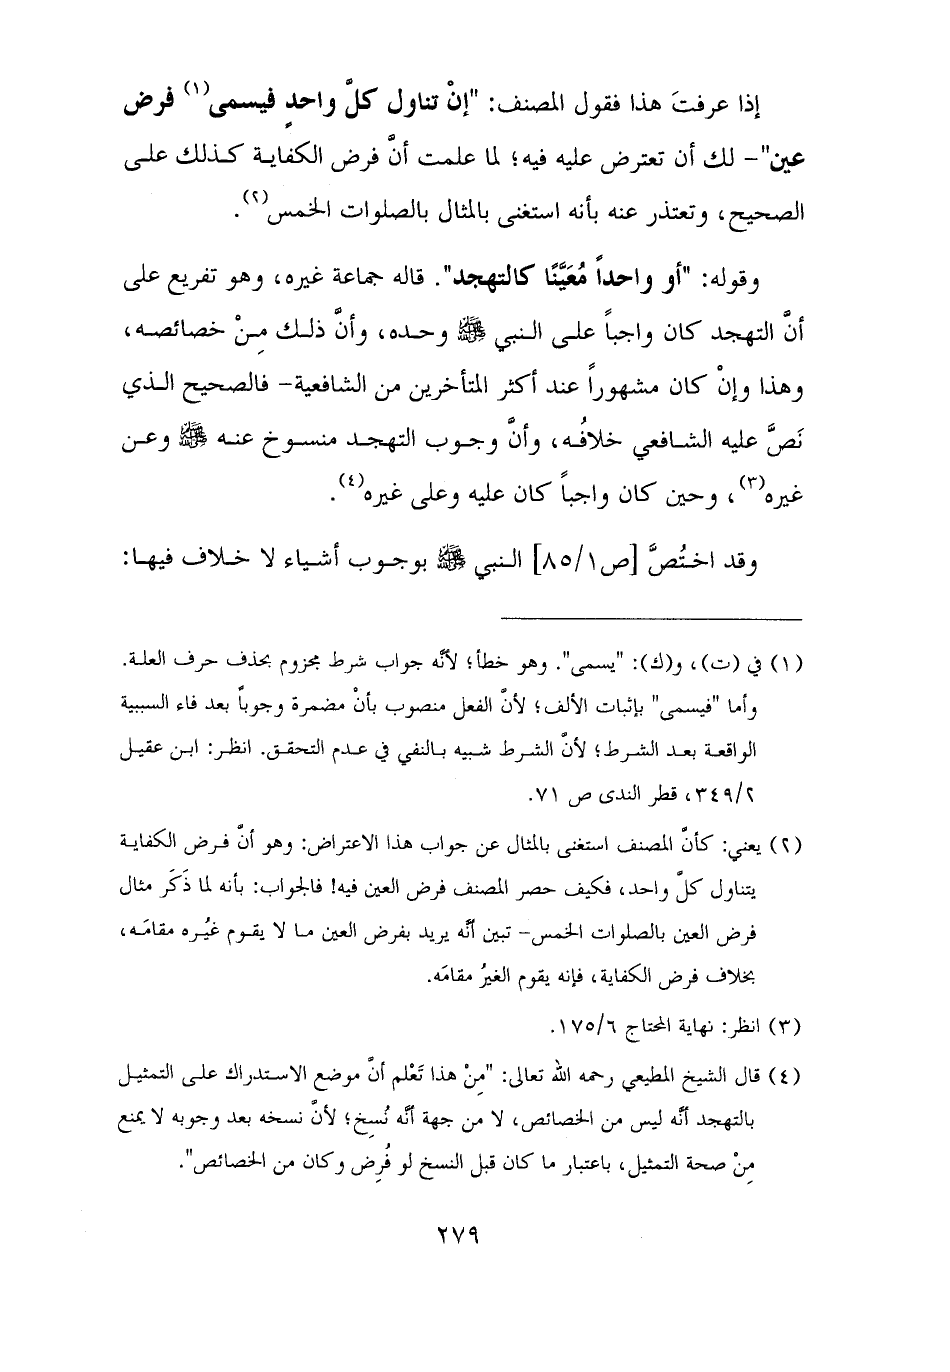 إذا عرفتَ هذا فقول المصنف: "إنْ تناول كلَّ واحدٍ فيسمى(١) فرض
عين"- لك أن تعترض عليه فيه؛ لما علمت أنَّ فرض الكفاية كذلك على
الصحيح، وتعتذر عنه بأنه استغنى بالمثال بالصلوات الخمس(٢).
وقوله: "أو واحداً مُعَيَّنًا كالتهجد". قاله جماعة غيره، وهو تفريع على
أنَّ التهجد كان واجباً على النبي ﷺ وحده، وأنَّ ذلك مِنْ خصائصه،
وهذا وإنْ كان مشهوراً عند أكثر المتأخرين من الشافعية- فالصحيح الذي
نَصَّ عليه الشافعي خلافُه، وأنَّ وجوب التهجد منسوخ عنه ﷺ وعن
غيره(٣)، وحين كان واجباً كان عليه وعلى غيره(٤).
وقد اختُصَّ [ص٨٥/١] النبي ﷺ بوجوب أشياء لا خلاف فيها:
(١) في (ت)، و(ك): "يسمى". وهو خطأ؛ لأنَّه جواب شرط مجزوم بحذف حرف العلة.
وأما "فيسمى" بإثبات الألف؛ لأنَّ الفعل منصوب بأنْ مضمرة وجوباً بعد فاء السببية
الواقعة بعد الشرط؛ لأنَّ الشرط شبيه بالنفي في عدم التحقق. انظر: ابن عقيل
٣٤٩/٢، قطر الندى ص ٧١.
(٢) يعني: كأنَّ المصنف استغنى بالمثال عن جواب هذا الاعتراض: وهو أنَّ فرض الكفاية
يتناول كلَّ واحد، فكيف حصر المصنف فرض العين فيه! فالجواب: بأنه لما ذَكَر مثال
فرض العين بالصلوات الخمس- تبين أنَّه يريد بفرض العين ما لا يقوم غيُره مقامَه،
بخلاف فرض الكفاية، فإنه يقوم الغيرُ مقامَه.
(٣) انظر: نهاية المحتاج ١٧٥/٦.
(٤) قال الشيخ المطيعي رحمه الله تعالى: "مِنْ هذا تَعْلم أنَّ موضع الاستدراك على التمثيل
بالتهجد أنَّه ليس من الخصائص، لا من جهة أنَّه نُسِخ؛ لأنَّ نسخه بعد وجوبه لا يمنع
مِنْ صحة التمثيل، باعتبار ما كان قبل النسخ لو فُرِض وكان من الخصائص".
٢٧٩